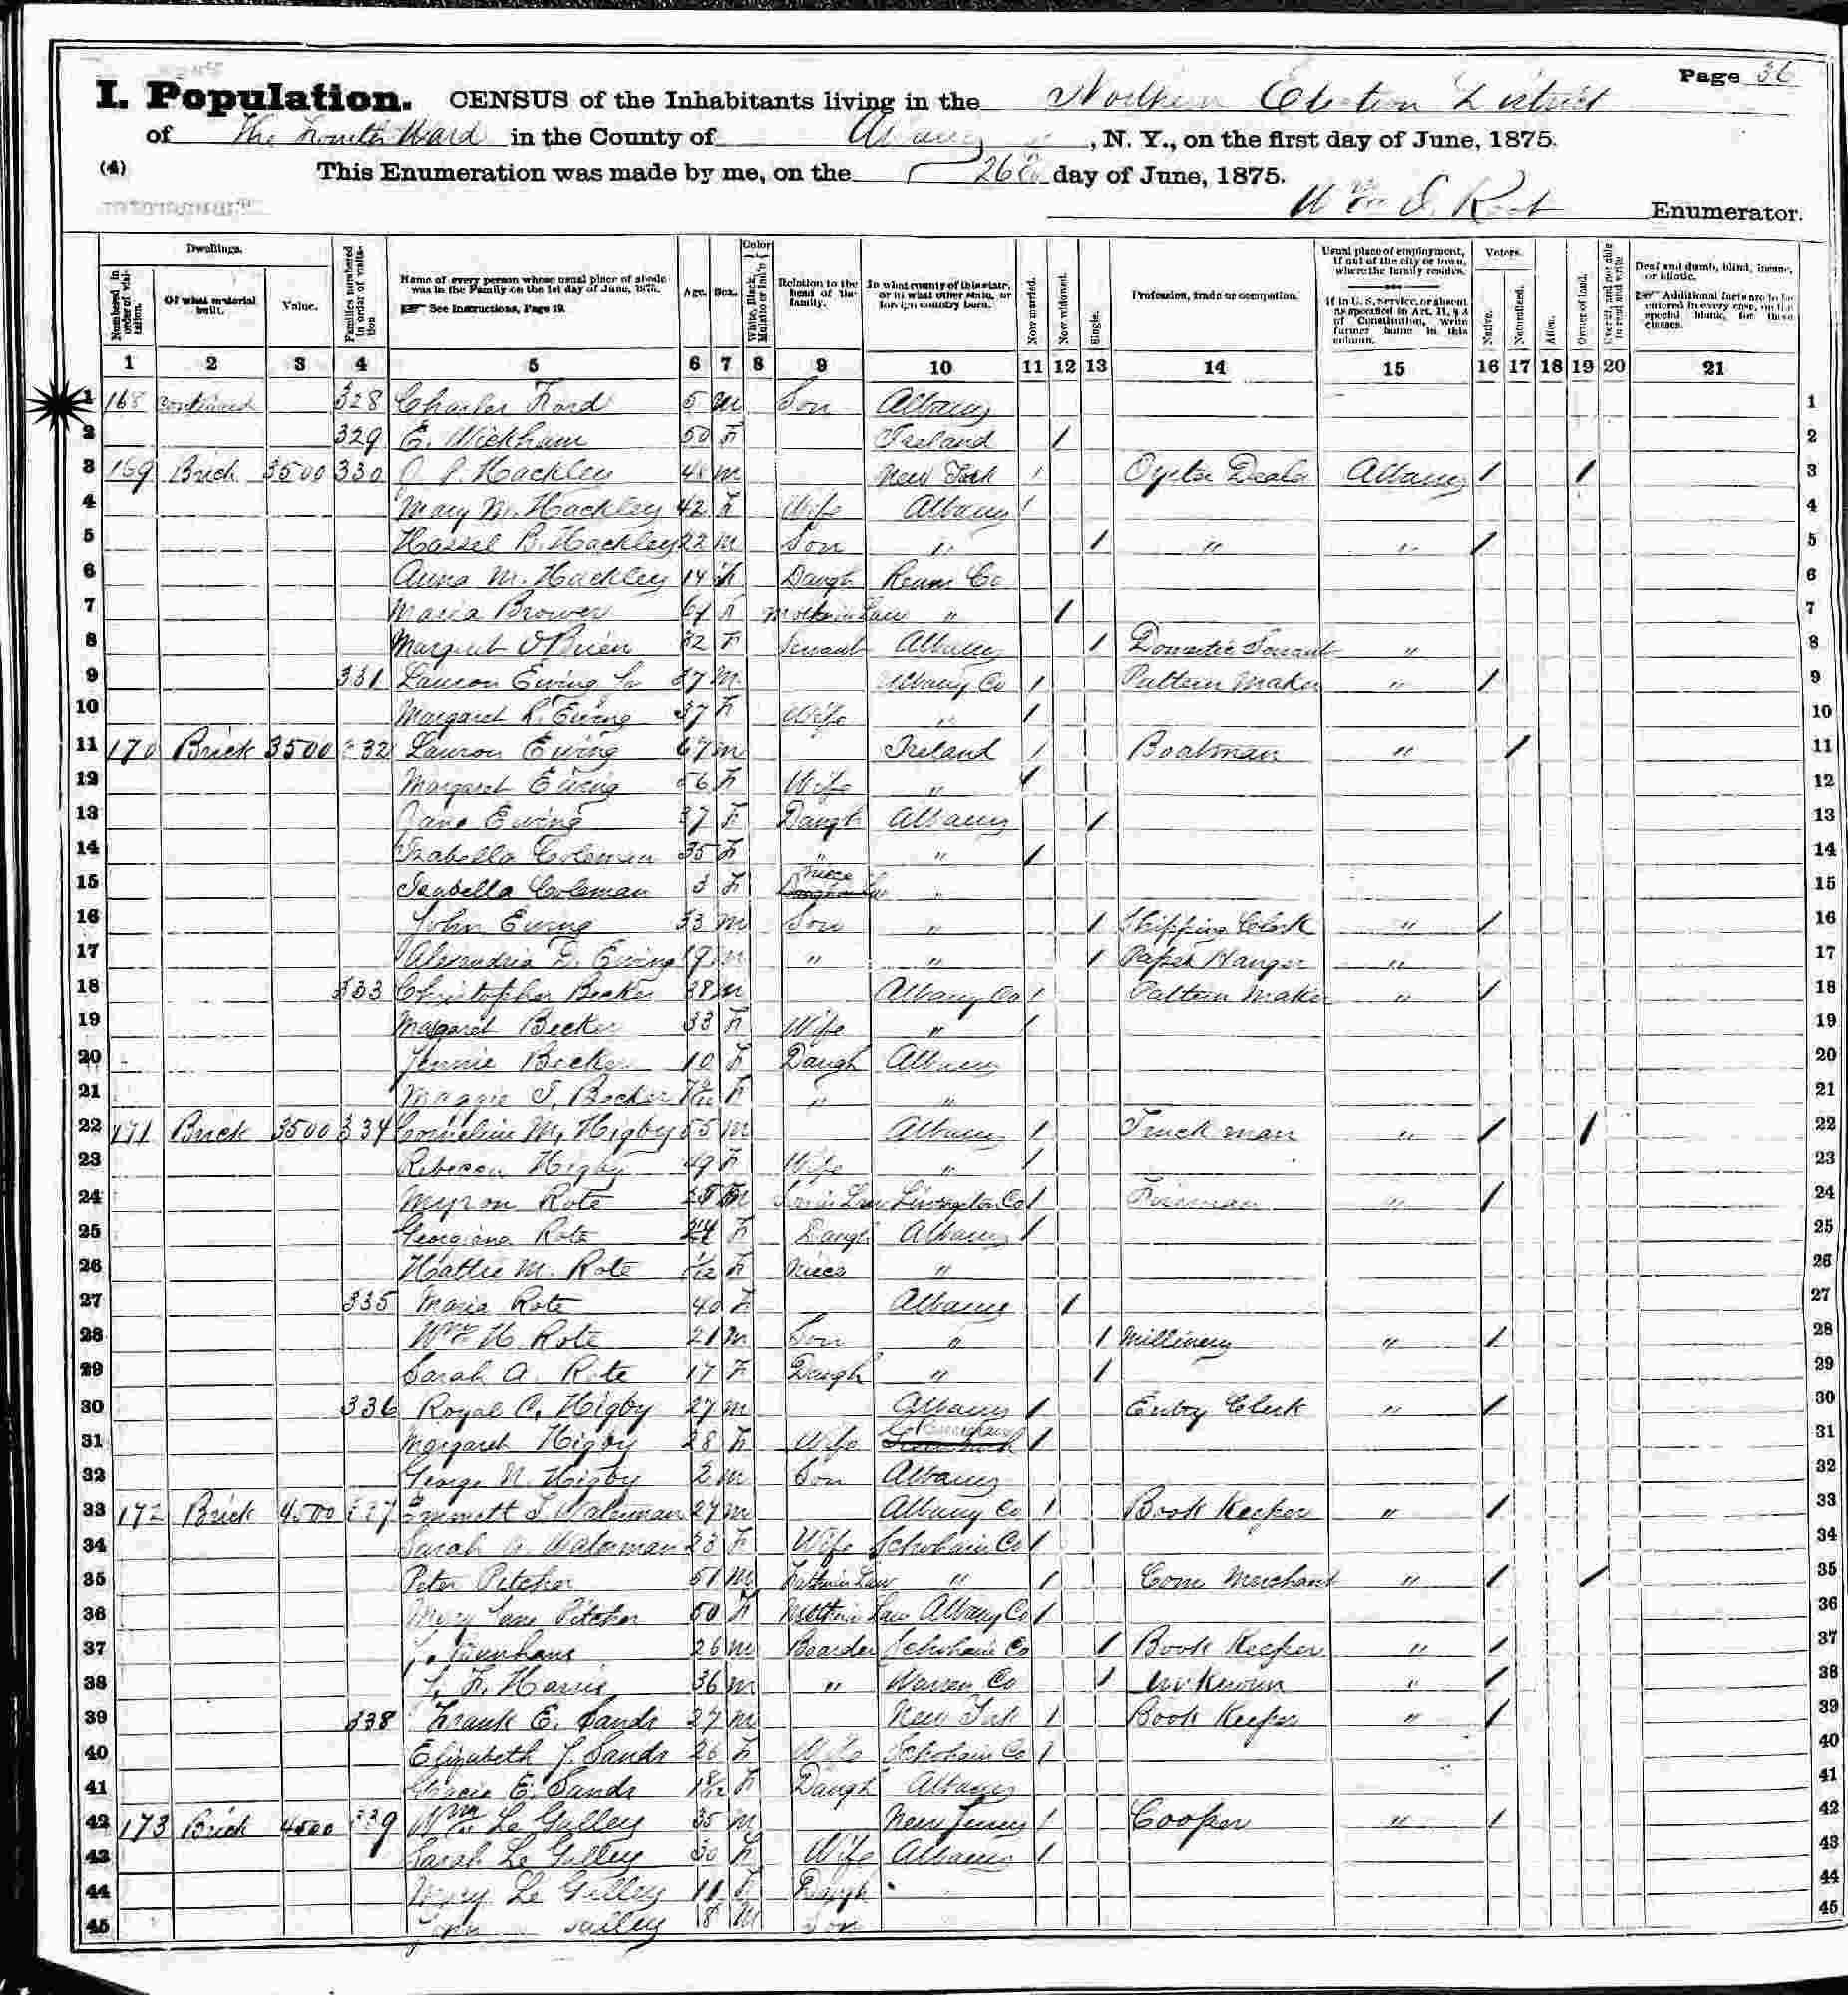 Page 36
I. Population. CENSUS of the Inhabitants living in the Northern Election District
of The Fourth Ward in the County of Albany, N. Y., on the first day of June, 1875.
(4) This Enumeration was made by me, on the 26 day of June, 1875.
Wm S. Root Enumerator.
Dwellings. Color Voters.
Numbered in order of visitation. Of what material built. Value. Families numbered in order of visitation Name of every person whose usual place of abode was in the Family on the 1st day of June, 1875. See Instructions, Page 19. Age. Sex. White, Black, Mulatto or Ind'n Relation to the head of the family. In what county of this state, or in what other state, or foreign country born. Now married. Now widowed. Single. Profession, trade or occupation. Usual place of employment, if out of the city or town, where the family resides. If in U. S. Service, or absent as specified in Art. II, § 3 of Constitution, write former home in this column. Native. Naturalized. Alien. Owner of land. Over 21, and not able to read and write Deaf and dumb, blind, insane, or idiotic. Additional facts are to be entered in every case, on the special blank, for these classes.
1 2 3 4 5 6 7 8 9 10 11 12 13 14 15 16 17 18 19 20 21
1 168 continued 328 Charles Ford 5 M Son Albany 1
2 329 E. Wickham 50 F Ireland / 2
3 169 Brick 3500 330 Hackley M New York / Oyster Dealer Albany / / 3
4 Mary M. Hackley 42 F Wife Albany / 4
5 Hassel B. Hackley 22 M Son " / " " / 5
6 Anna M. Hackley 14 F Daugh Renss Co 6
7 Maria Brower F Mother in Law " / 7
8 Margret O'Brien 32 F Servant Albany / Domestic Servant " 8
9 331 Lauron Ewing Jr 37 M Albany Co / Pattern Maker " / 9
10 Margaret R. Ewing 37 F Wife " / 10
11 170 Brick 3500 332 Lauron Ewing 67 M Ireland / Boatman " / 11
12 Margaret Ewing 56 F Wife " / 12
13 Jane Ewing 37 F Daugh Albany / 13
14 Isabella Coleman 35 F " " / 14
15 Isabella Coleman 3 F Niece " 15
16 John Ewing 33 M Son " / Shipping Clerk " / 16
17 Ewing 19 M " " / Paper Hanger " 17
18 333 Christopher Becker 38 M Albany Co / Pattern Maker " / 18
19 Margaret Becker 33 F Wife " / 19
20 Jennie Becker 10 F Daugh Albany 20
21 Maggie I. Becker F " " 21
22 171 Brick 3500 334 Cornelius M. Higby 55 M Albany / Truck man " / / 22
23 Rebecca Higby 49 F Wife " / 23
24 Myron Rote M Son in Law Livingston Co / Fireman " / 24
25 Georgiana Rote 24 F Daugh Albany / 25
26 Hattie M. Rote F Niece " 26
27 335 Maria Rote 40 F Albany / 27
28 Wm H. Rote 21 M Son " / Millinery " / 28
29 Sarah A. Rote 17 F Daugh " / 29
30 336 Royal C. Higby 27 M Albany / Entry Clerk " / 30
31 Margaret Higby 28 F Wife / 31
32 George N. Higby 2 M Son Albany 32
33 172 Brick 4500 337 Emmett Waterman 27 M Albany Co / Book Keeper " / 33
34 Sarah A. Waterman 23 F Wife Schoharie Co / 34
35 Peter Pitcher 51 M Father in Law " / Com Merchant " / / 35
36 Mary Jane Pitcher 50 F Mother in Law Albany Co / 36
37 26 M Boarder Schoharie Co / Book Keeper " / 37
38 F. Harris 36 M " Warren Co / Unknown " / 38
39 338 Frank E. Sands 27 M New York / Book Keeper " / 39
40 Elizabeth J. Sands 26 F Wife Schoharie Co / 40
41 Gracie E. Sands F Daugh Albany 41
42 173 Brick 4500 339 Wm Le Galley 35 M New Jersey / Cooper " / 42
43 Sarah Le Galley 30 F Wife Albany / 43
44 Mary Le Galley 11 F Daugh 44
45 Galley M Son 45